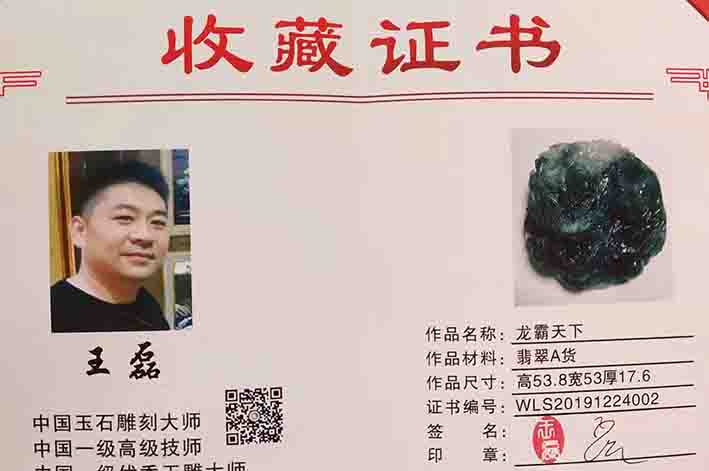 收藏证书
王磊
中国玉石雕刻大师
中国一级高级技师
中国一级优秀玉雕大师
作品名称：龙霸天下
作品材料：翡翠A货
作品尺寸：高53.8宽53厚17.6
证书编号：WLS20191224002
签名：
印章：